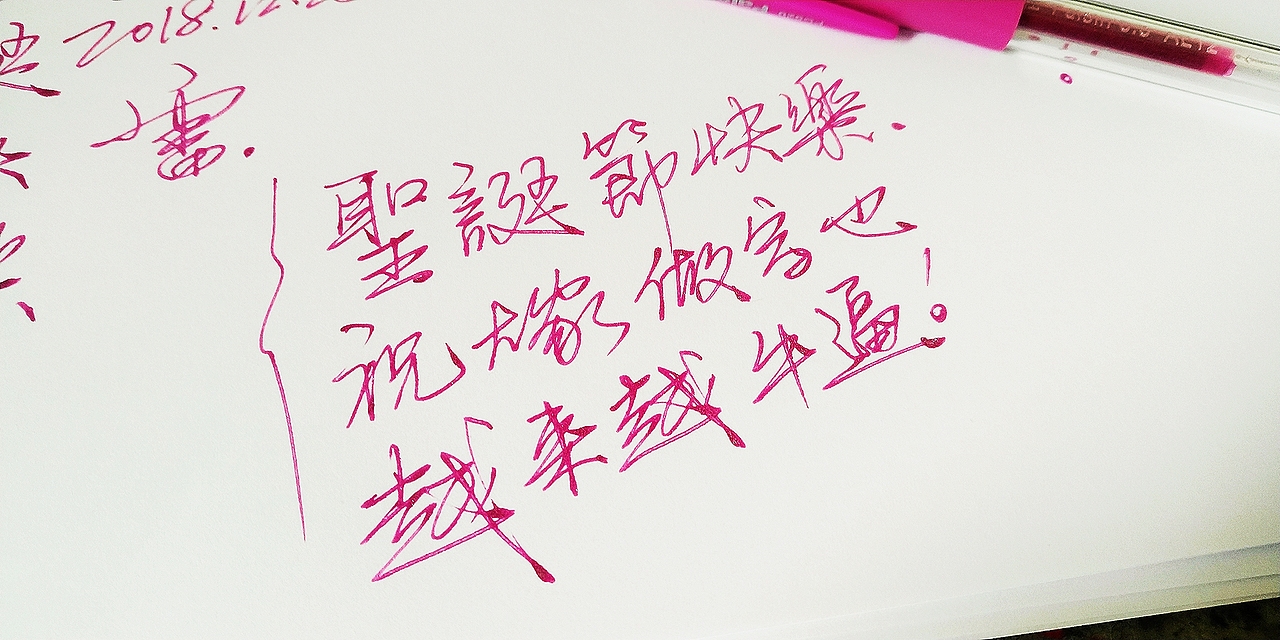 2018.12.2
雷.
聖誕節快樂.
祝大家做字也
越来越牛逼!